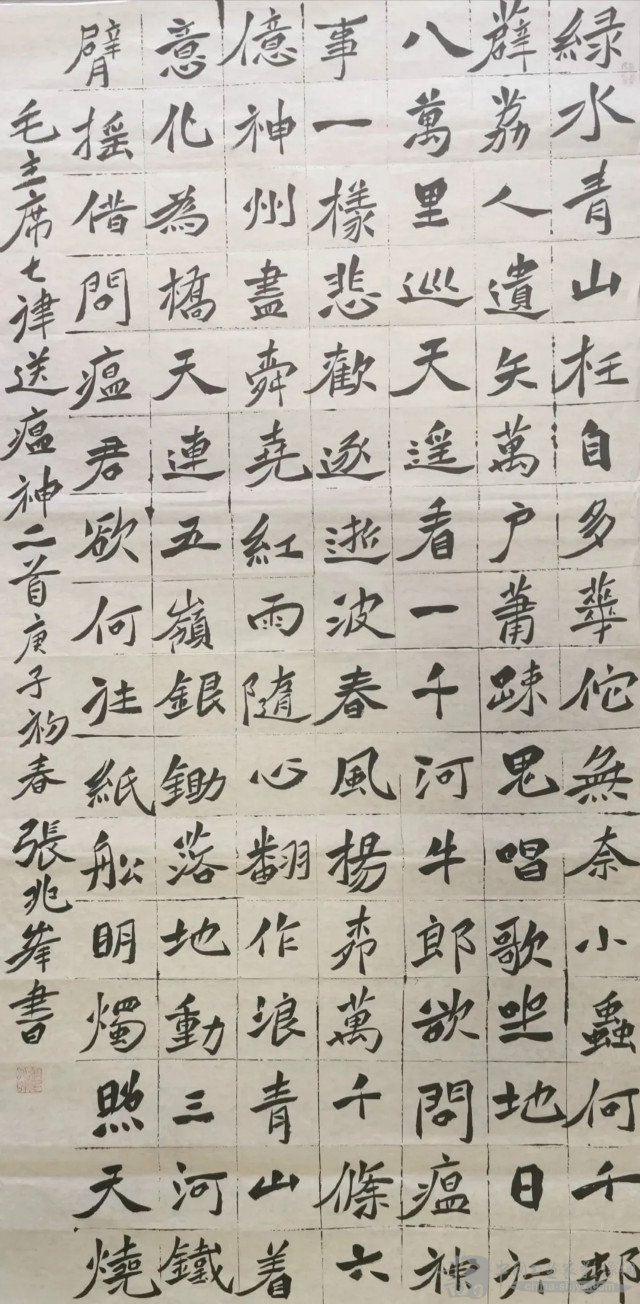 緑水青山枉自多華佗無奈小蟲何千邨
薜荔人遺矢萬户蕭踈鬼唱歌坐地日行
八萬里巡天遥看一千河牛郎欲問瘟神
事一樣悲歡逐逝波春風楊柳萬千條六
億神州盡舜堯紅雨隨心翻作浪青山着
意化為橋天連五嶺銀鋤落地動三河鐵
臂摇借問瘟君欲何往紙船明燭照天燒
毛主席七律送瘟神二首庚子初春 張兆峯書